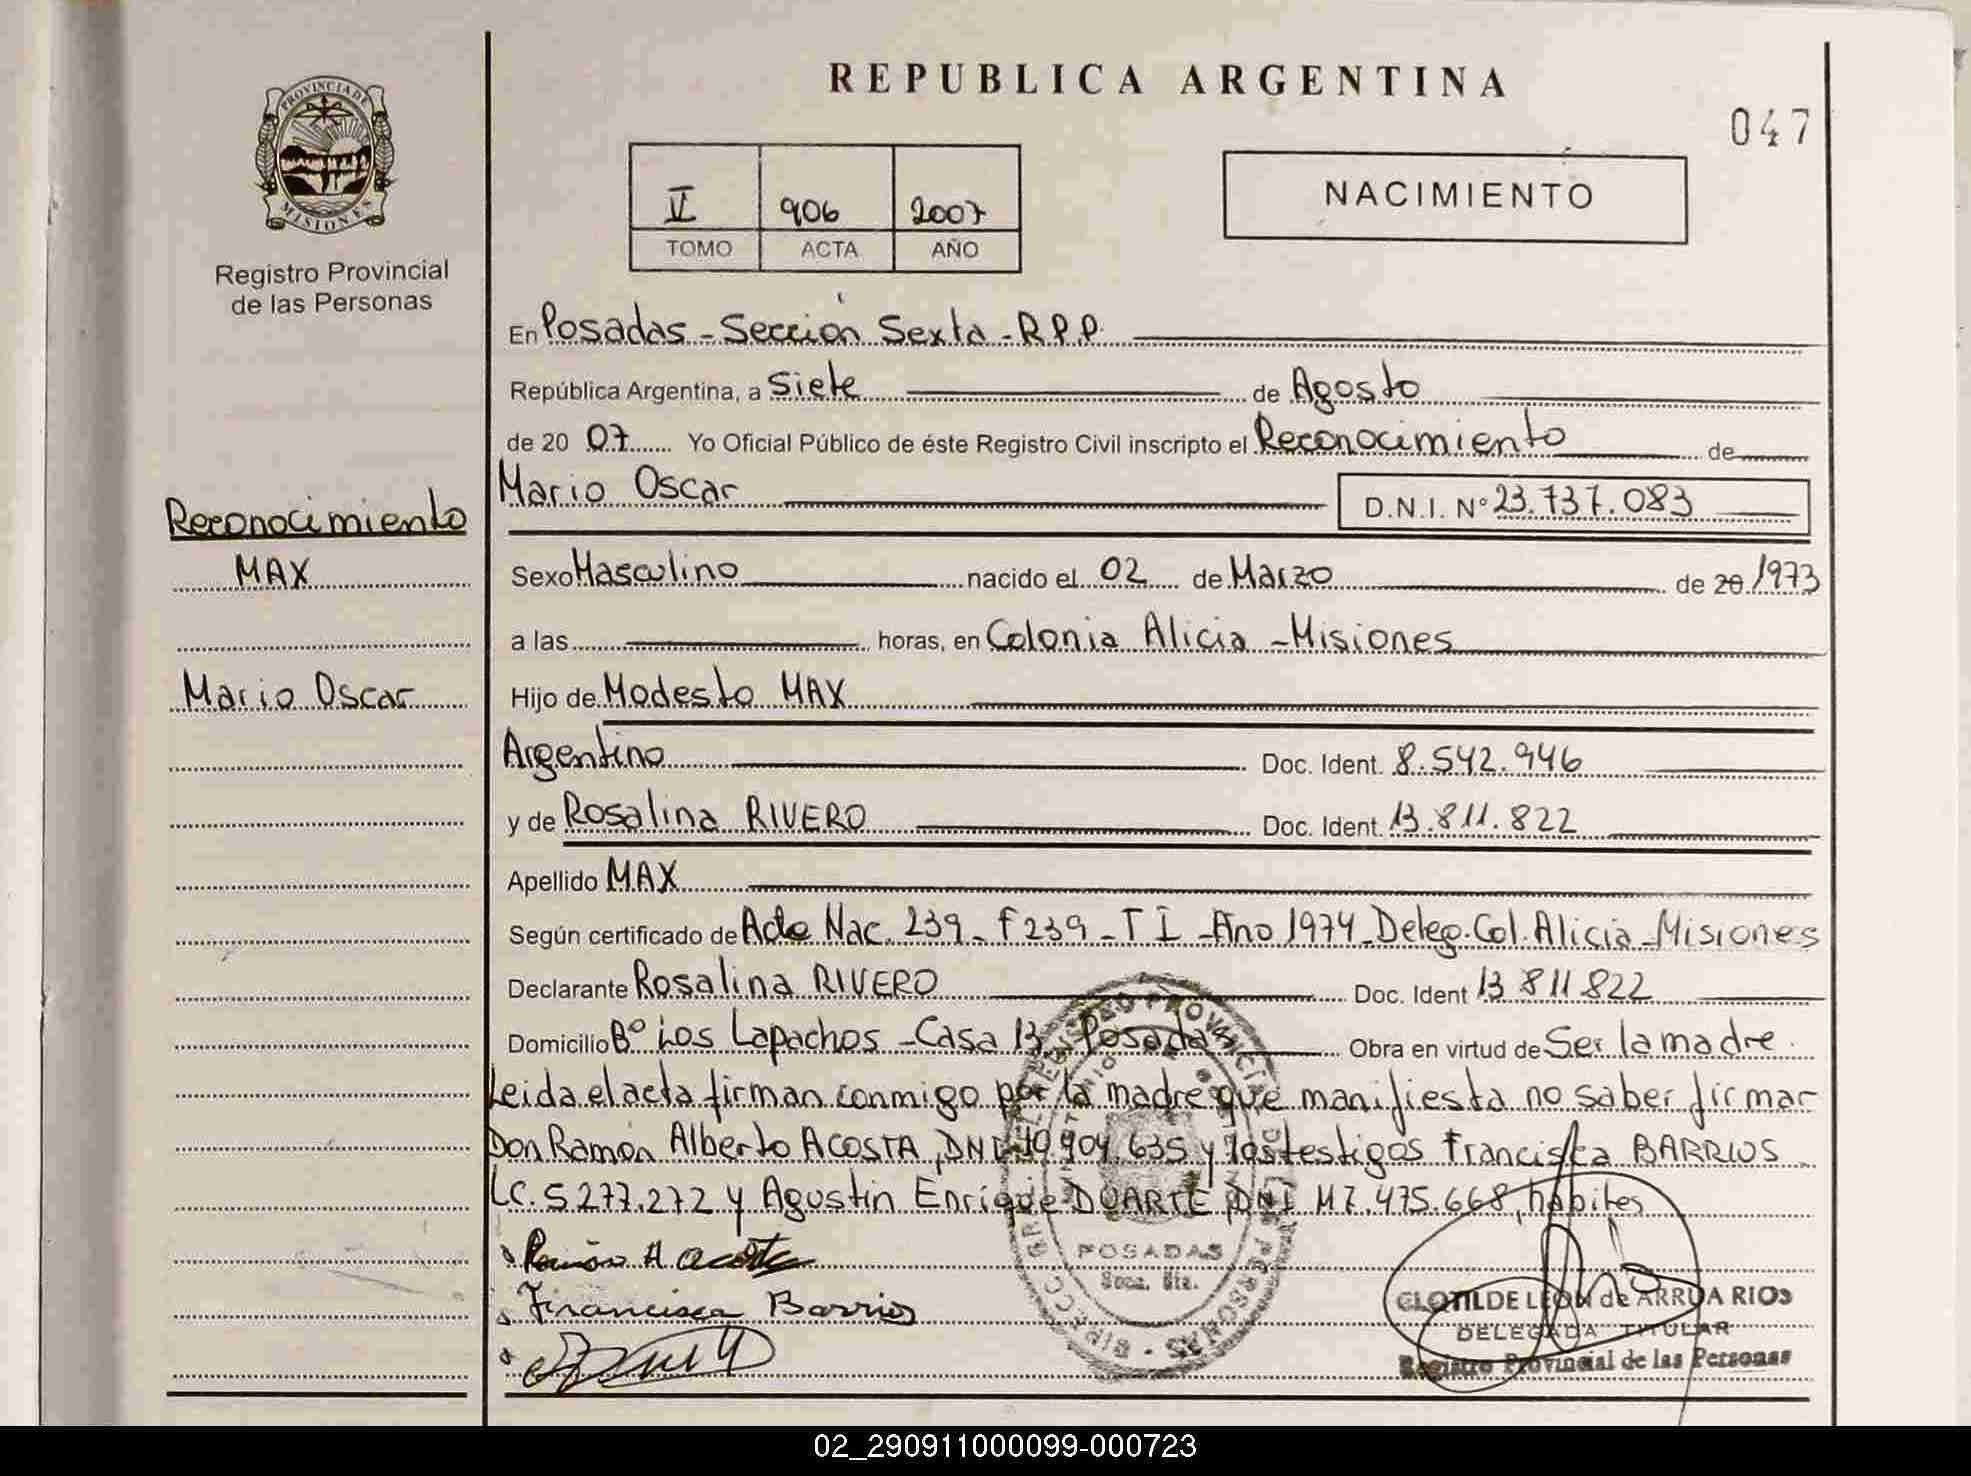 REPUBLICA ARGENTINA
047
PROVINCIA DE
MISIONES
Registro Provincial
de las Personas
V 906 2007
TOMO ACTA AÑO
NACIMIENTO
En Posadas - Sección Sexta - R.P.P.
República Argentina, a Siete de Agosto
de 20 07 Yo Oficial Público de éste Registro Civil inscripto el Reconocimiento de
Mario Oscar D.N.I. Nº 23.737.083
Reconocimiento
MAX
Mario Oscar
Sexo Masculino nacido el 02 de Marzo de 20 1973
a las horas, en Colonia Alicia - Misiones
Hijo de Modesto MAX
Argentino Doc. Ident. 8.542.946
y de Rosalina RIVERO Doc. Ident. 13.811.822
Apellido MAX
Según certificado de Acta Nac. 239 - F 239 - T I - Año 1974 - Deleg. Col. Alicia - Misiones
Declarante Rosalina RIVERO Doc. Ident 13 811 822
Domicilio Bº Los Lapachos - Casa 13 Posadas Obra en virtud de Ser la madre.
Leida el acta firman conmigo por la madre que manifiesta no saber firmar
Don Ramón Alberto ACOSTA, DNI 10.904.635 y los testigos Francisca BARRIOS
LC. 5.277.272 y Agustin Enrique DUARTE DNI M7.475.668, habites
Ramón A Acosta
Francisca Barrios
POSADAS
Secc. 6ta.
CLOTILDE LEON de ARRUA RIOS
DELEGADA TITULAR
Registro Provincial de las Personas
02_290911000099-000723